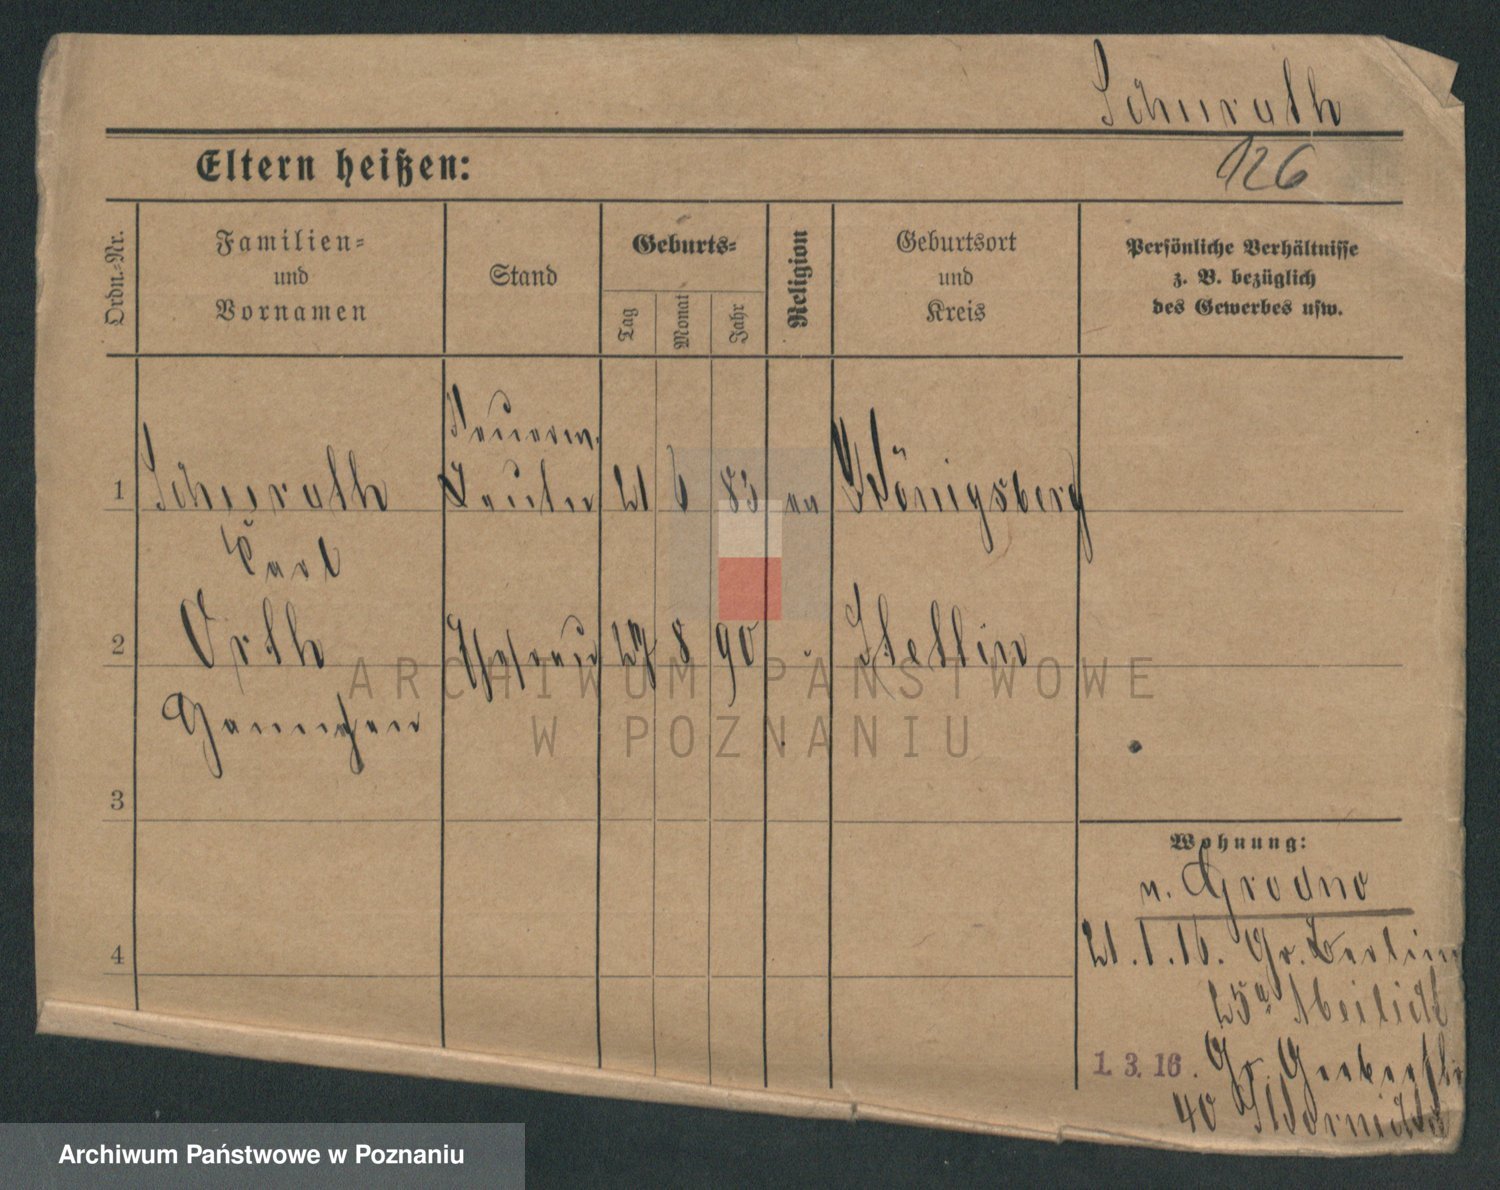 Schurath
126
Eltern heißen:
Ordn.-Nr.
Familien-
und
Vornamen
Stand
Geburts-
Tag
Monat
Jahr
Religion
Geburtsort
und
Kreis
Persönliche Verhältnisse
z. B. bezüglich
des Gewerbes usw.
Feuerw.
1 Schurath Leutn 21 6 83 ev Königsberg
Carl
2 Orth Ehefrau 27 8 90 " Stettin
Hannchen
3
4
Wohnung:
n. Grodno
21.1.16. Gr. Berlin
25a
1. 3. 16. Gr. Gerberstr
40
ARCHIWUM PAŃSTWOWE
W POZNANIU
Archiwum Państwowe w Poznaniu